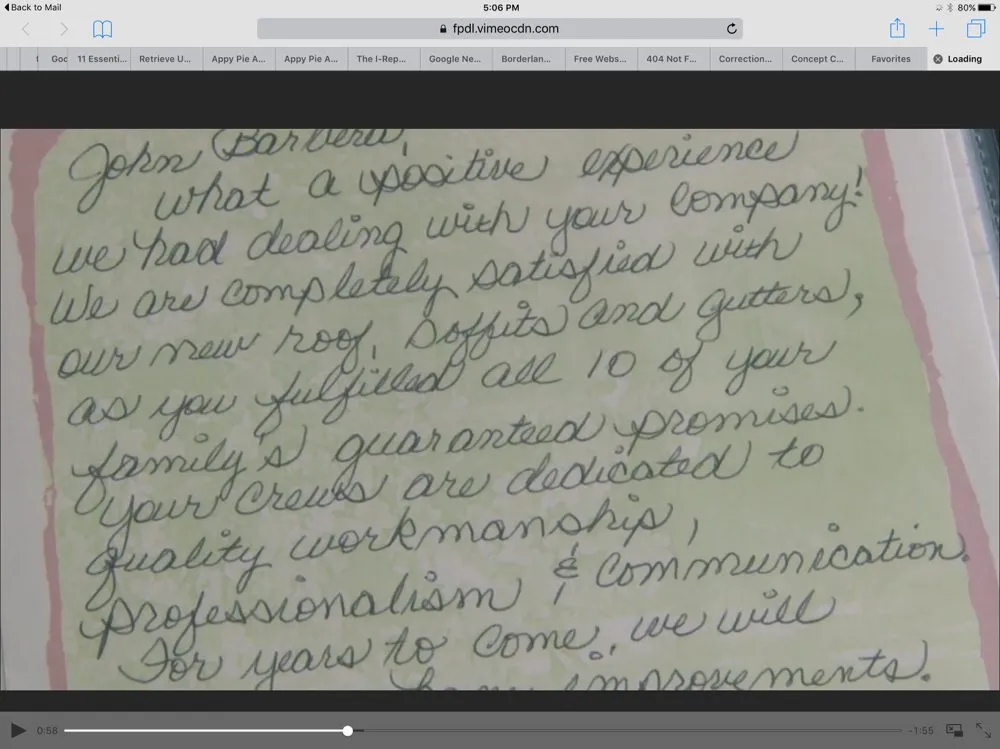 Back to Mail
5:06 PM
80%
fpdl.vimeocdn.com
Goo
11 Essenti...
Retrieve U...
Appy Pie A...
Appy Pie A...
The I-Rep...
Google Ne...
Borderlan...
Free Webs...
404 Not F...
Correction...
Concept C...
Favorites
Loading
John Barbera,
what a positive experience
we had dealing with your company!
We are completely satisfied with
our new roof, soffits and gutters,
as you fulfilled all 10 of your
family's guaranteed promises.
Your crews are dedicated to
quality workmanship,
professionalism & communication.
For years to come, we will
home improvements.
0:58
-1:55